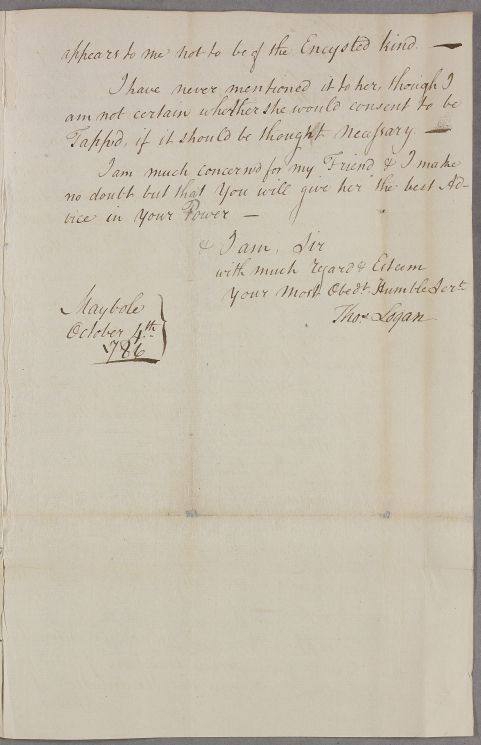 appears to me not to be of the Encysted kind. —
I have never mentioned it to her, though I
am not certain whether she would consent to be
Tapp'd, if it should be thought necessary. —
I am much concern'd for my Friend & I make
no doubt but that You will give her the best Ad-
vice in your Power —
& I am, Sir
with much regard & Esteem
Your Most Obedt. Humble Sert.
Thos. Logan
Maybole
October 4th.
1786